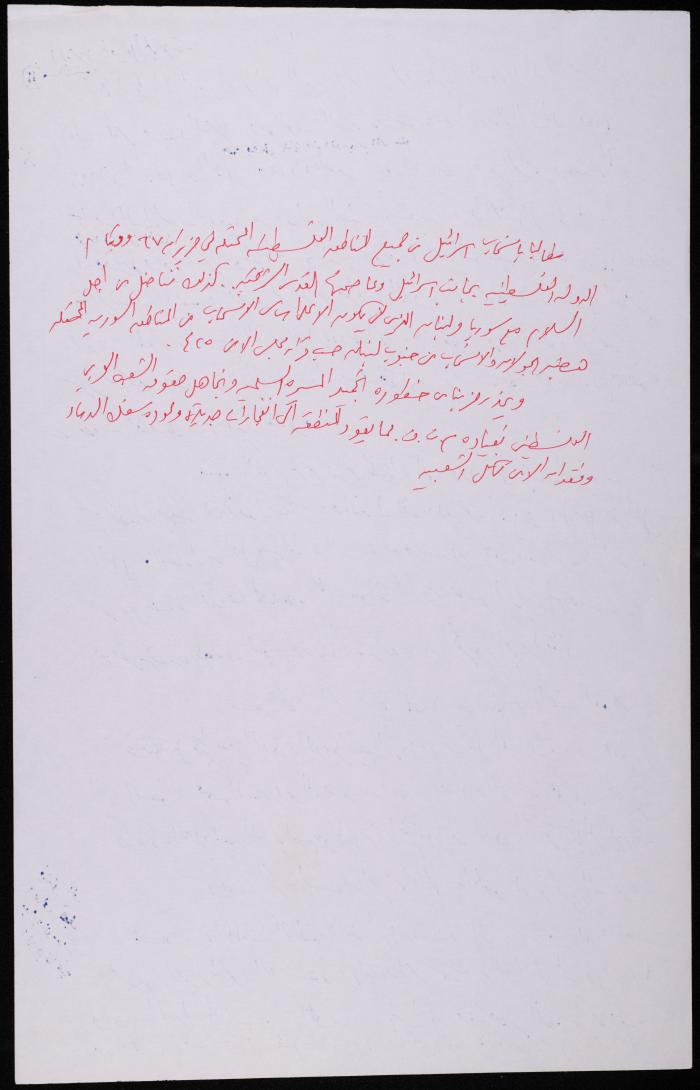 مطالبا بإنسحاب اسرائيل من جميع المناطق الفلسطينية المحتلة في حزيران ٦٧ وقيام
الدولة الفلسطينية بجانب اسرائيل وعاصمتها القدس الشرقية. كذلك نناضل من اجل
السلام مع سوريا ولبنان الذي يكون الاساس الانسحاب من المناطق السورية المحتلة
هضبة الجولان والانسحاب من جنوب لبنان حسب قرار مجلس الامن ٤٢٥.
ويحذر حزبنا من خطورة تجميد المسيرة السلمية وتجاهل حقوق الشعب العربي
الفلسطيني بقيادة م.ت.ف. مما يقود المنطقة الى انفجارات جديدة ولعودة سفك الدماء
وفقدان الامن لكل الشعبين